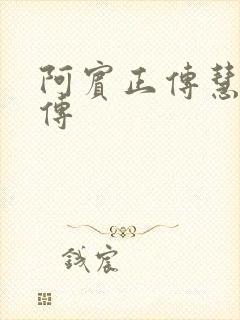 阿賓正傳慧
傳
錢宸